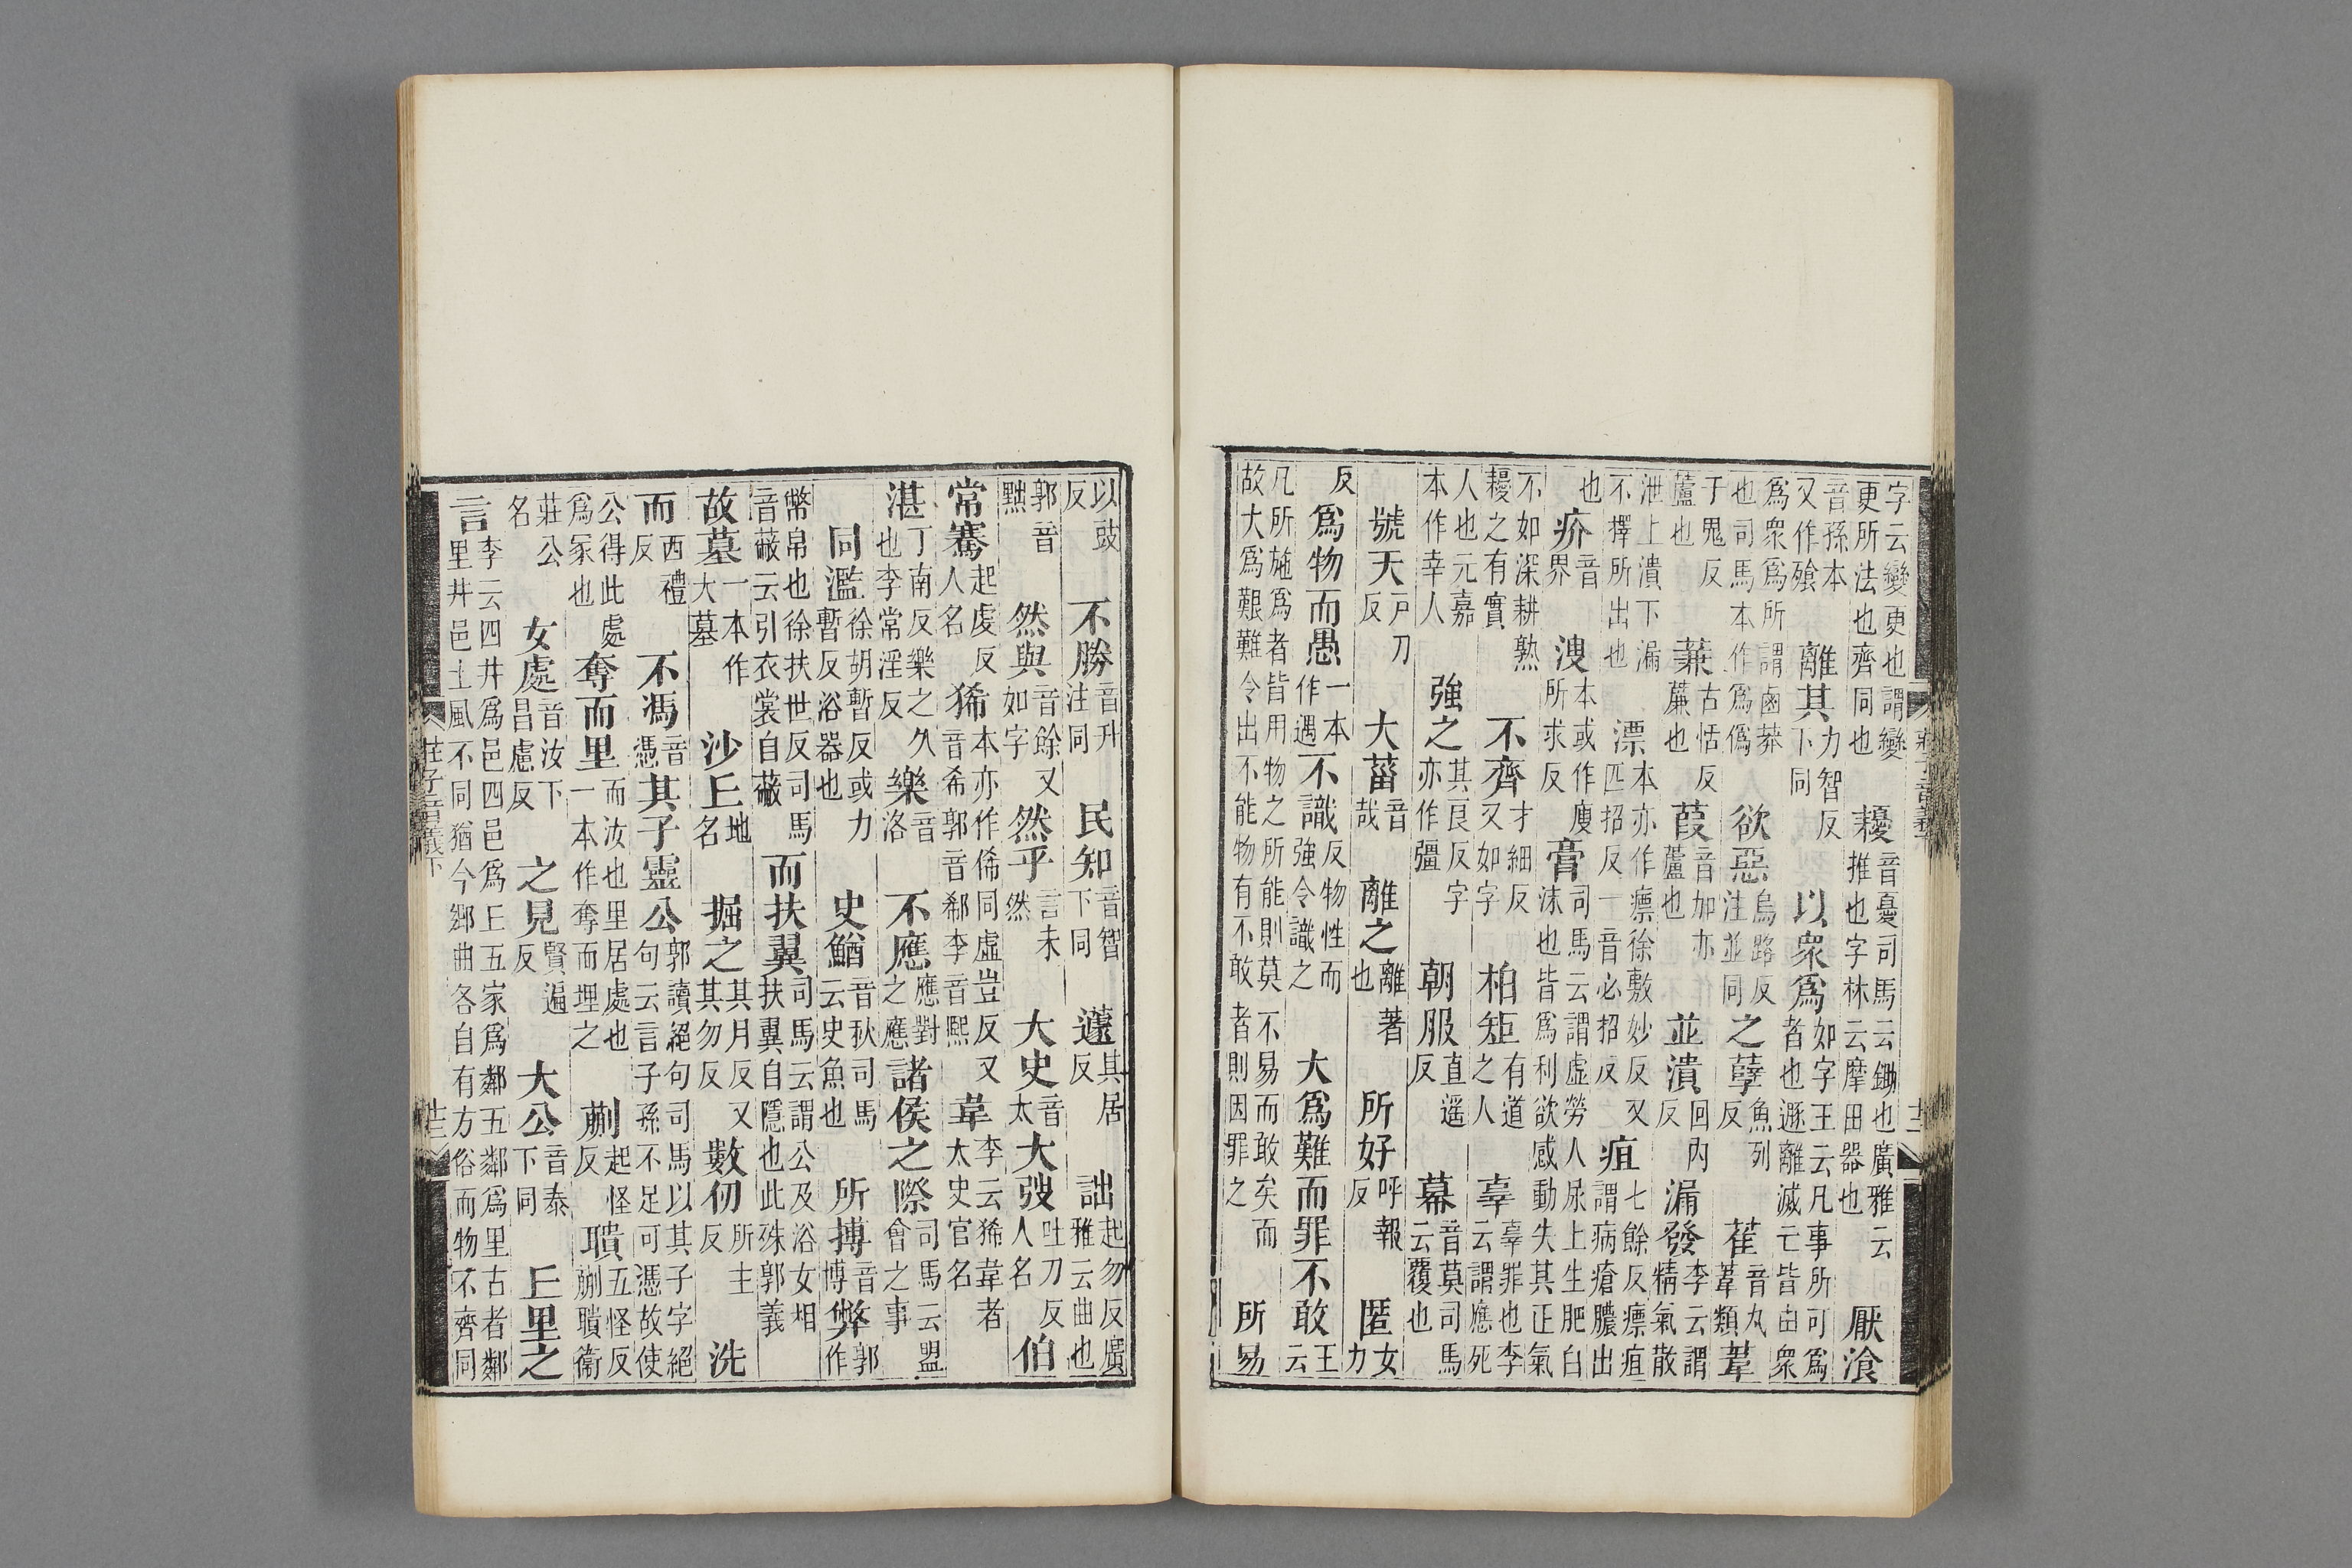 字云變更也謂變更所法也齊同也 耰音憂司馬云鋤也廣雅云推也字林云摩田器也 厭湌
音孫本又作飱 離其力智反下同 以衆爲如字王云凡事所可爲者也遯離滅亡皆由衆
爲衆爲所謂鹵莽也司馬本作爲僞 欲惡烏路反注並同 之孽魚列反 萑音丸葦類 葦
于鬼反蘆也 蒹古恬反薕也 葭音加亦蘆也 並潰回內反 漏發李云謂精氣散
泄上潰下漏不擇所出也 漂本亦作瘭徐敷妙反又匹招反一音必招反 疽七餘反瘭疽謂病瘡膿出
也 疥音界 溲本或作廋所求反 膏司馬云謂虛勞人尿上生肥白沫也皆爲利欲感動失其正氣
不如深耕熟耰之有實 不齊才細反又如字 柏矩有道之人 辜辜罪也李云謂應死
人也元嘉本作幸人 強之其良反字亦作彊 朝服直遥反 幕音莫司馬云覆也
號天戸刀反 大菑音哉 離之離著也 所好呼報反 匿女力
反 爲物而愚一本作遇 不識反物性而強令識之 大爲難而罪不敢王云
凡所施爲者皆用物之所能則莫不易而敢矣而故大爲艱難令出不能物有不敢者則因罪之 所易
以豉反 不勝音升注同 民知音智下同 遽其居反 詘起勿反廣雅云曲也
郭音黜 然與音餘又如字 然乎言未然 大史音太 大弢吐刀反人名 伯
常騫起虔反人名 狶本亦作俙同虛豈反又音希郭音郗李音熙 韋李云狶韋者太史官名
湛丁南反樂之久也李常淫反 樂音洛 不應應對之應 諸侯之際司馬云盟會之事
同濫徐胡暫反或力暫反浴器也 史鰌音秋司馬云史魚也 所搏音博 弊郭作
幣帛也徐扶世反司馬音蔽云引衣裳自蔽 而扶翼司馬云謂公及浴女相扶翼自隱也此殊郭義
故墓一本作大墓 沙丘地名 掘之其月反又其勿反 數仞所主反 洗
而西禮反 不馮音憑 其子靈公郭讀絕句司馬以其子字絕句云言子孫不足可憑故使
公得此處爲冢也 奪而里而汝也里居處也一本作奪而埋之 蒯起怪反 聵五怪反蒯聵衛
莊公名 女處音汝下昌慮反 之見賢遍反 大公音泰下同 丘里之
言李云四井爲邑四邑爲丘五家爲鄰五鄰爲里古者鄰里井邑土風不同猶今鄉曲各自有方俗而物不齊同
莊子音義下 十三